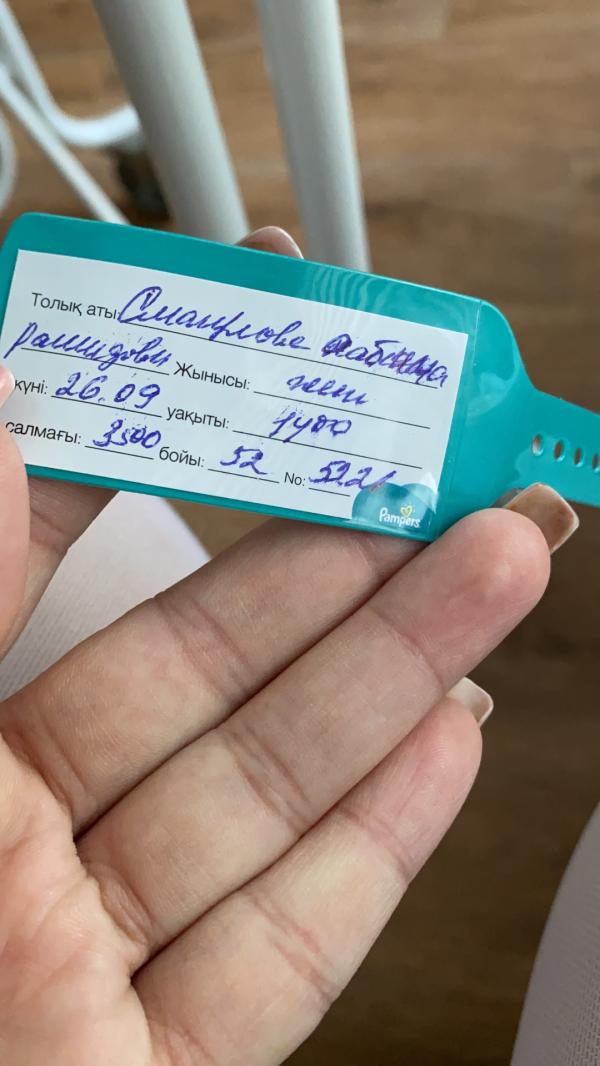 Толық аты: Смаилова
Рашидовн Жынысы: жен
күні: 26.09 уақыты: 1400
салмағы: 3500 бойы: 52 No: 5221
Pampers